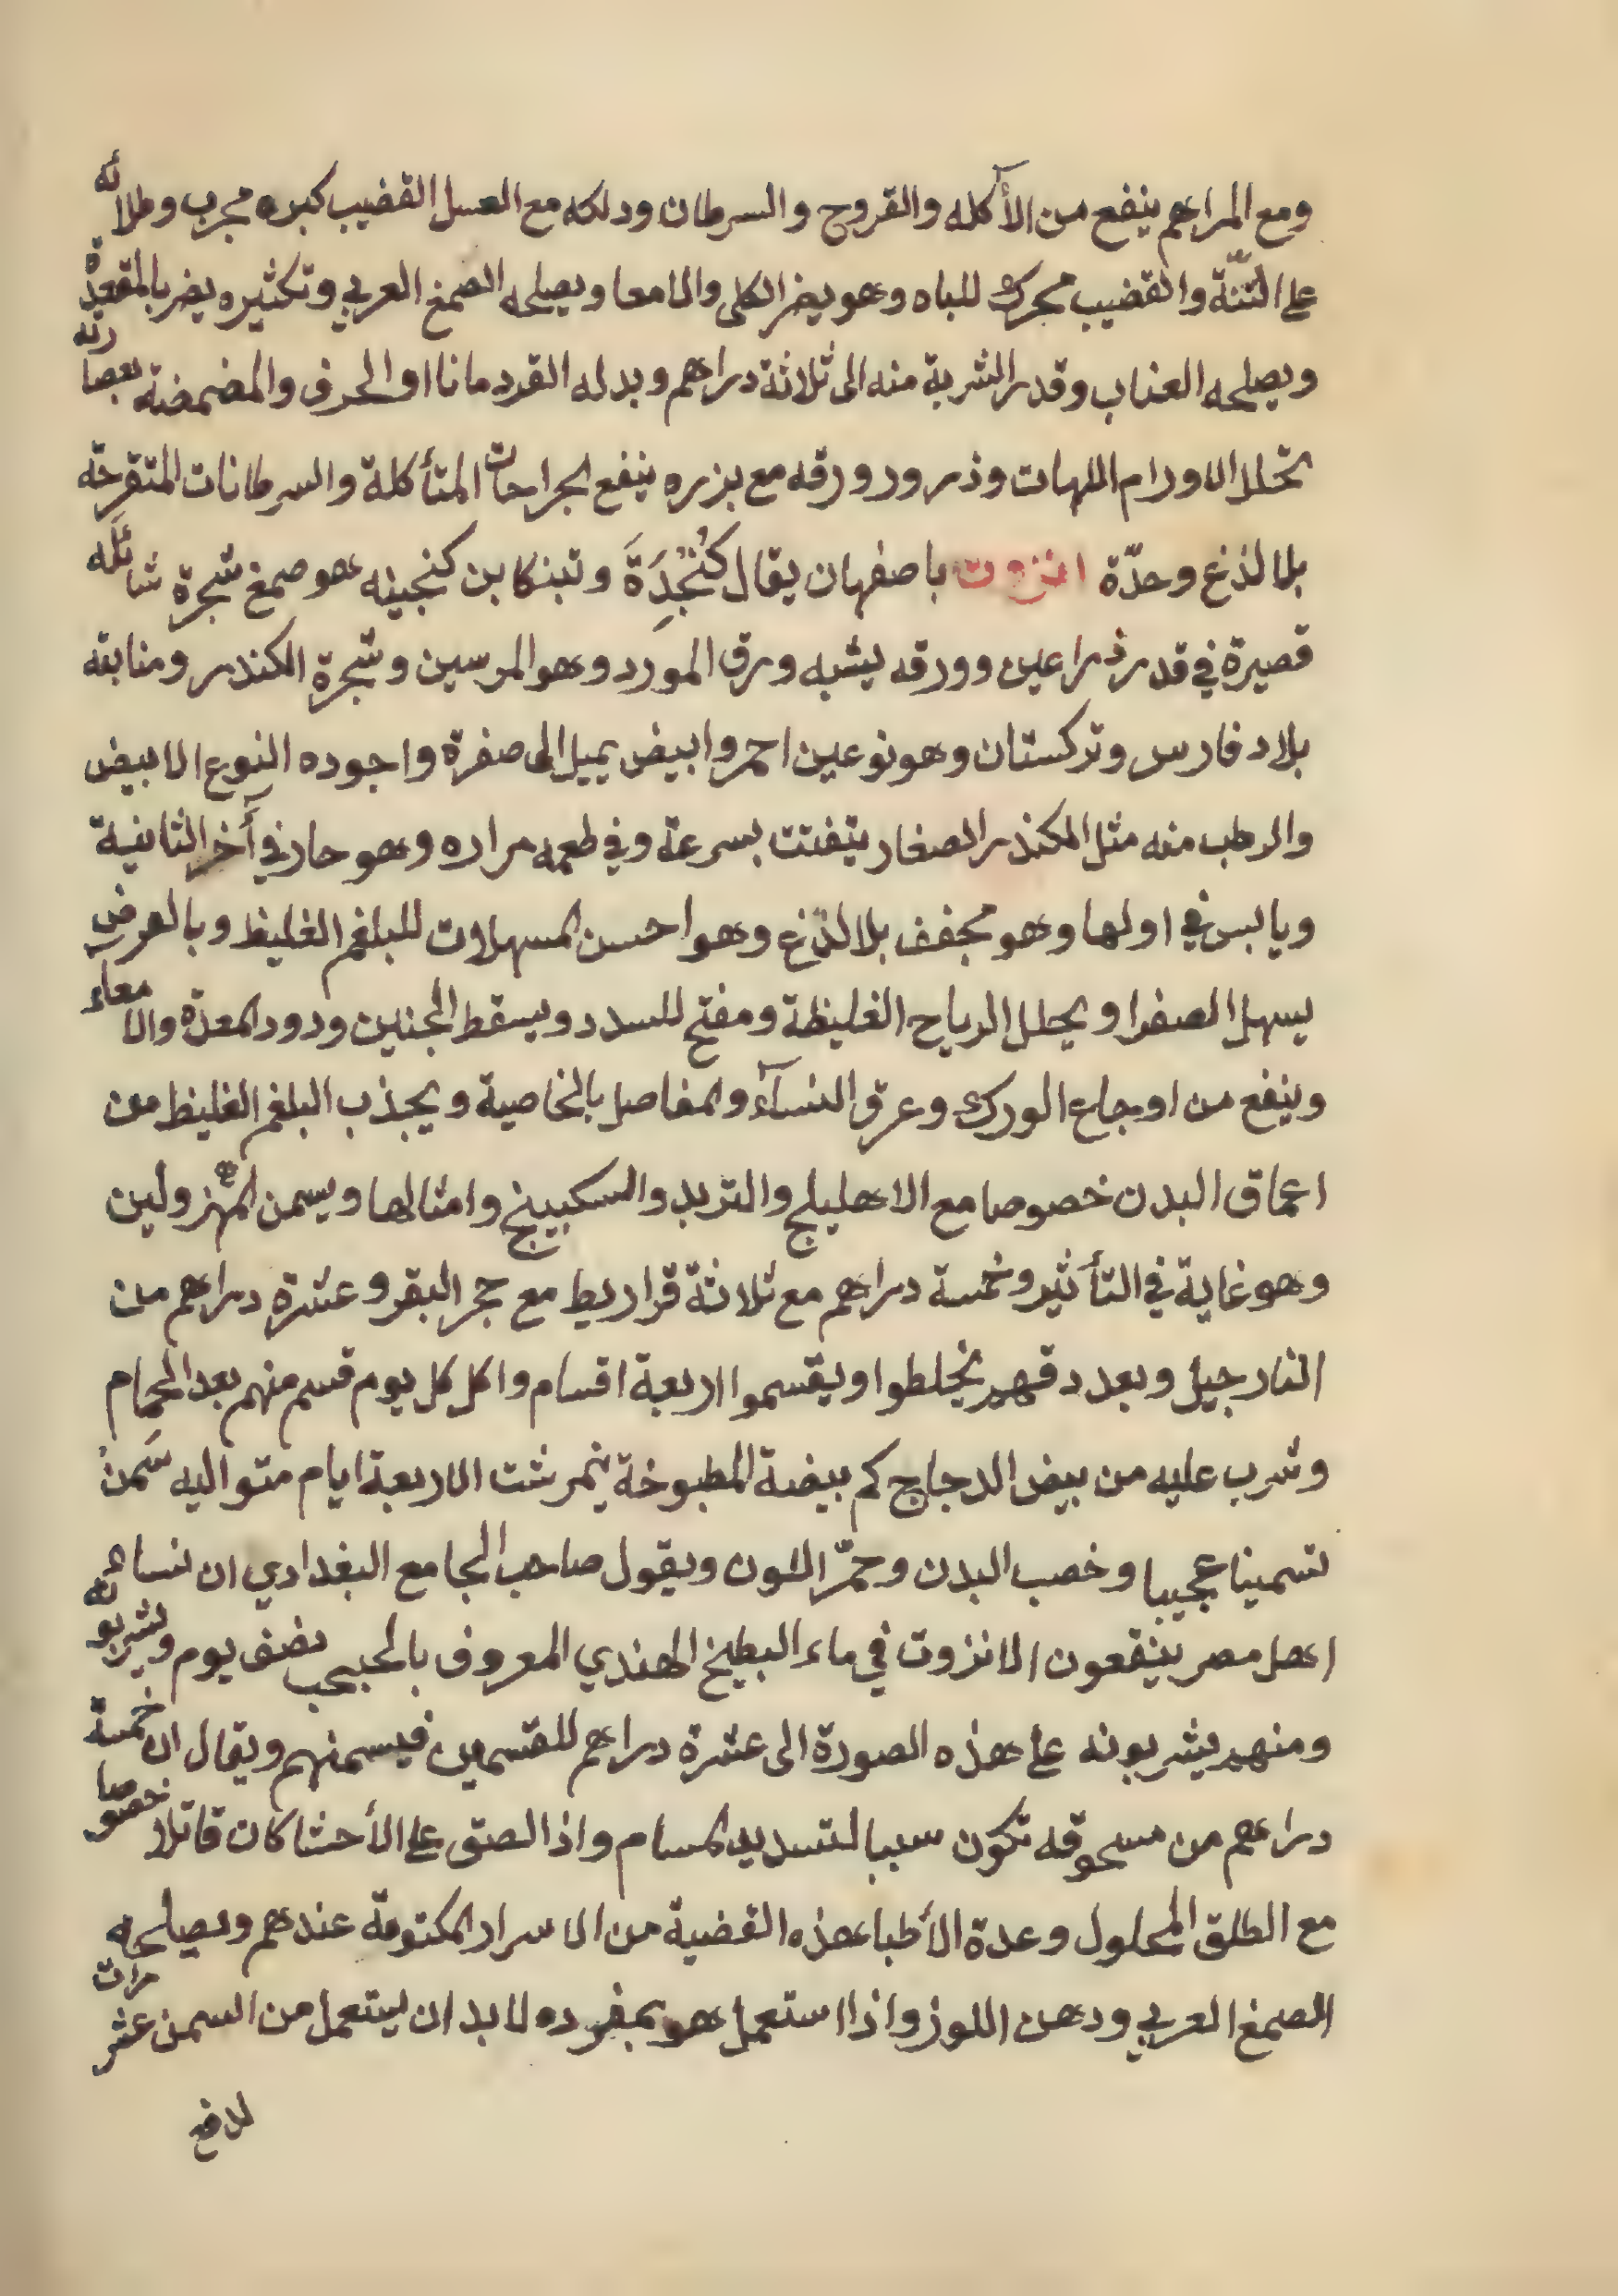 ومع المراهم ينفع من الأكله والقروح والسرطان ودلكه مع العسل القضيب كبره مجرب وطلائه
على الثنّة والقضيب محرك للباه وهو يضر الكلى والامعا ويصلحه الصمغ العربي وتكثيره يضر بالمقعدة
ويصلحه العناب وقدر الشربة منه الى ثلاثة دراهم وبدله القردمانا او الحرف والمضمضة بعصارته
تحلل الاورام اللهات وذرور ورقه مع بزره ينفع الجراحات المتأكلة والسرطانات المتقرحة
بلا لذغ وحدّة انزروت باصفهان يقال كُنْجِدَةَ وتبنكابن كنجينه هو صمغ شجرة شائكَه
قصيرة في قدر ذراعين وورقه يشبه ورق المورد وهو المرسين وشجرة الكندر ومنابته
بلاد فارس وتركستان وهو نوعين احمر وابيض يميل الى صفرة واجوده النوع الابيض
والرطب منه مثل الكندر الصغار يتفتت بسرعة وفي طعمه مراره وهو حار في أخر الثانية
ويابس في اولها وهو مجفف بلا لذغ وهو احسن المسهلات للبلغم الغليظ وبالعرض
يسهل الصفرا ويحلل الرياح الغليظة ومفتح للسدد ويسقط الجنين ودود المعدة والامعاء
وينفع من اوجاع الورك وعرق النسآء والمفاصل بالخاصية ويجذب البلغم الغليظ من
اعماق البدن خصوصا مع الاهليلج والتربد والسكبينج وامثالها ويسمن المهزولين
وهو غاية في التأثير وخمسة دراهم مع ثلاثة قراريط مع حجر البقر وعشرة دراهم من
النارجيل وبعد دقهم يخلطوا ويقسموا اربعة اقسام واكل كل يوم قسم منهم بعد الحمام
وشرب عليه من بيض الدجاج كم بيضة المطبوخة نيمرشت الاربعة ايام متواليه سَمنْ
تسمينا عجيبا وخصب البدن وحمّر اللون ويقول صاحب الجامع البغدادي ان نساء
اهل مصر ينقعون الانزروت في ماء البطيخ الهندي المعروف بالحبحب نصف يوم ويشربونه
ومنهم يشربونه على هذه الصورة الى عشرة دراهم للقسمين فيسمنهم ويقال ان خمسة
دراهم من مسحوقه تكون سببا لتسديد المسام واذا لصق على الأحشا كان قاتلا خصوصا
مع الطلق المحلول وعدة الأطبا هذه القضية من الاسرار المكتومة عندهم ويصلحه
الصمغ العربي ودهن اللوز واذا استعمل هو بمفرده لا بد ان يستعمل من السمن عشر مرات
لدفع